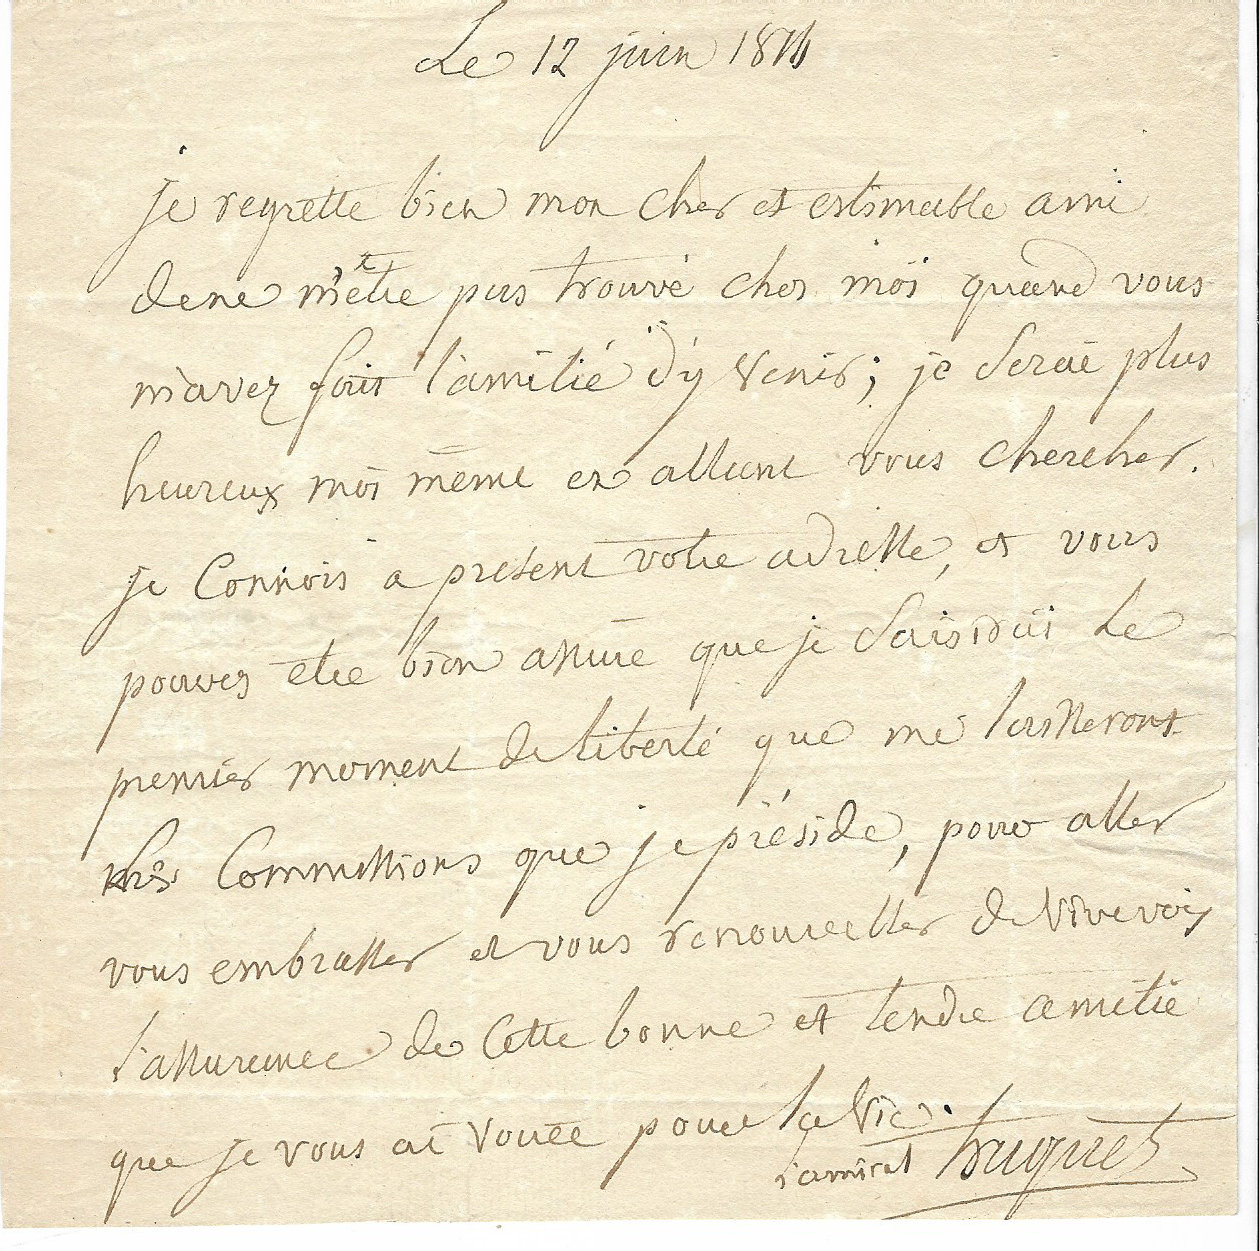 Le 12 juin 1814
je regrette bien mon cher et estimable ami
de ne m'être pas trouvé chez moi quand vous
m'avez fait l'amitié d'y venir; je serai plus
heureux moi même en allant vous chercher.
je connois a present votre adresse, et vous
pouvez etre bien assuré que je saisirai le
premier moment de liberté que me laisseront
les commissions que je préside, pour aller
vous embrasser et vous renouveller de vive voix
l'assurance de cette bonne et tendre amitié
que je vous ai vouée pour la vie.
l'amiral truguet